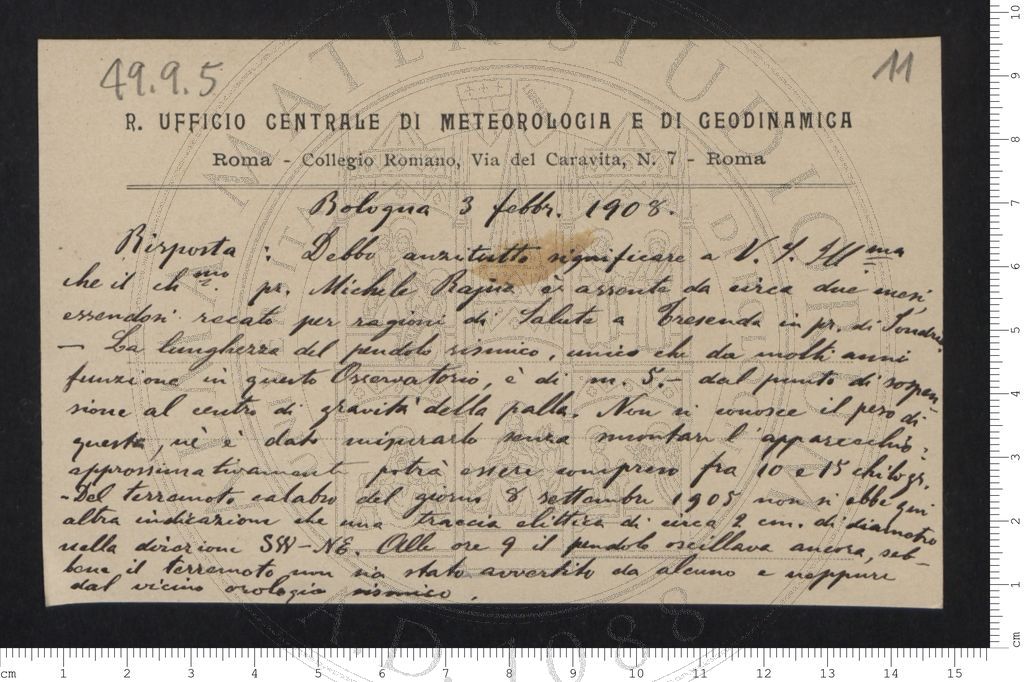 49.9.5
11
R. UFFICIO CENTRALE DI METEOROLOGIA E DI GEODINAMICA
Roma - Collegio Romano, Via del Caravita, N. 7 - Roma
Bologna 3 febbr. 1908.
Risposta: Debbo anzitutto significare a V. S. Ill.ma
che il ch.mo pr. Michele Rajna è assente da circa due mesi
essendosi recato per ragioni di salute a Tresenda in pr. di Sondrio.
— La lunghezza del pendolo sismico, unico che da molti anni
funzione in questo Osservatorio, è di m. 5.- dal punto di sospen-
sione al centro di gravità della palla. Non si conosce il peso di
questa, nè è dato misurarlo senza smontare l'apparecchio:
approssimativamente potrà essere compreso fra 10 e 15 chilogr.
- Del terremoto calabro del giorno 8 settembre 1905 non si ebbe qui
altra indicazione che una traccia elittica di circa 2 cm. di diametro
nella direzione SW-NE. Alle ore 9 il pendolo oscillava ancora, seb-
bene il terremoto non sia stato avvertito da alcuno e neppure
dal vicino orologio sismico.
cm 1 2 3 4 5 6 7 8 9 10 11 12 13 14 15
10
9
8
7
6
5
4
3
2
1
cm
ALMA MATER STUDIORUM
A.D. 1088